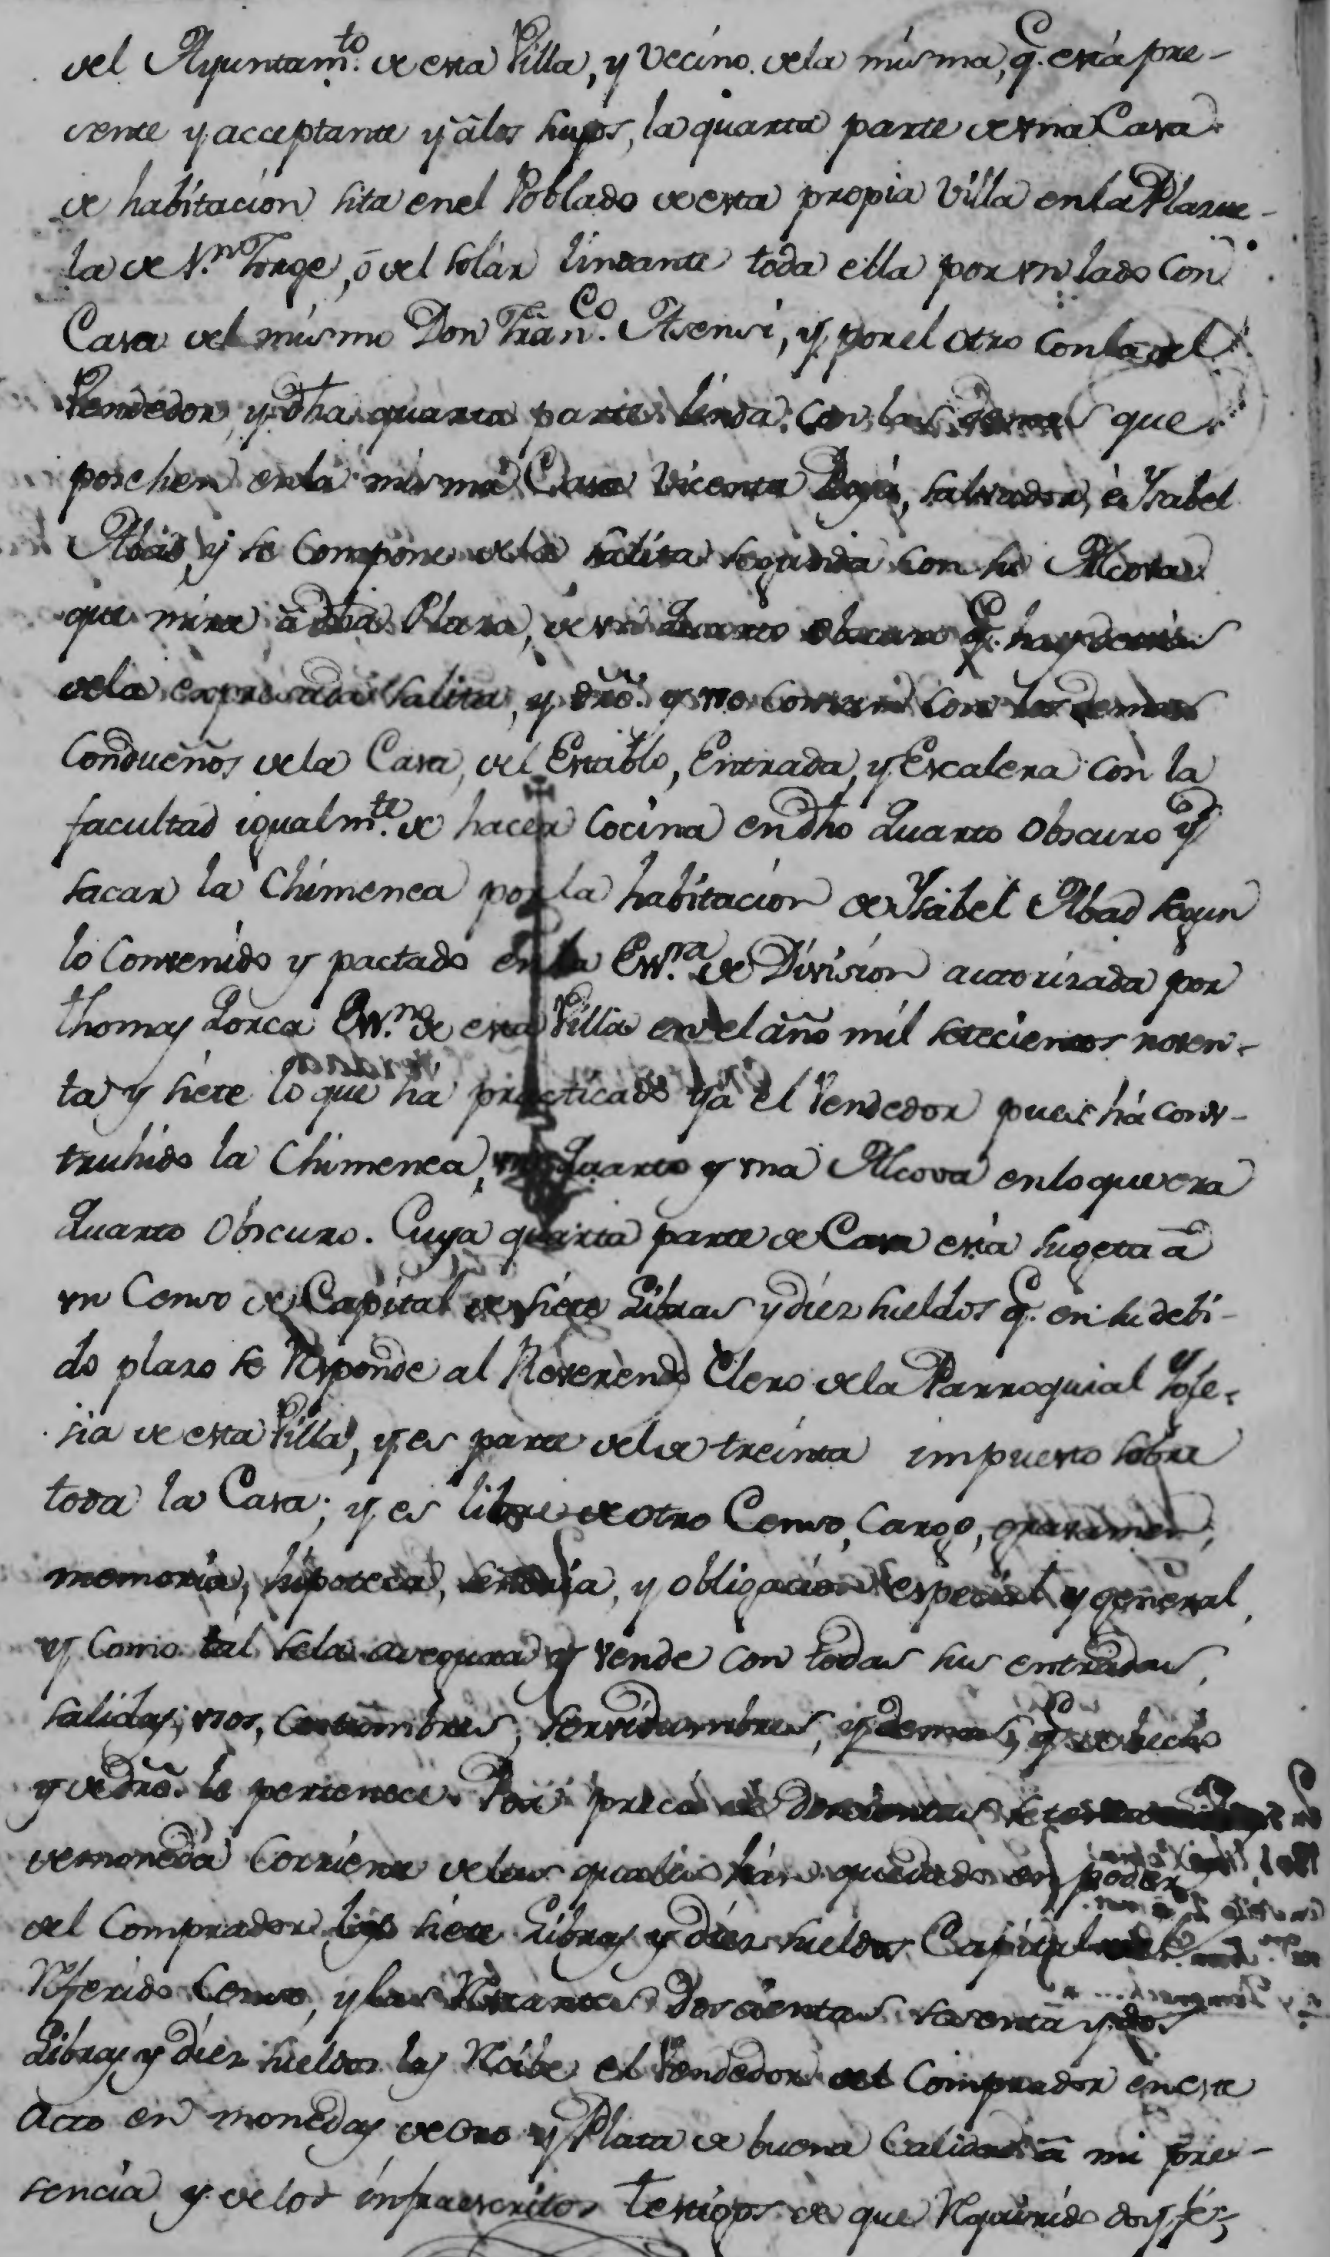 del Ayuntam.to de esta Villa, y Vecino dela misma, q. está pre-
sente y acceptante y âlos suyos, la quarta parte de vna Casa
de habitacion sita enel Poblado de esta propia Villa en la Plazue-
la de S.n Jorge, ó del Solár lindante toda ella por vn lado Con
Casa del mismo Don Fran.co Asensi, y por el otro Con la del
Vendedor, y dha quarta parte linda con las demas que
poséhen en la misma Casa Vicenta, Salvador, é Ysabel
Abad, y se Compone de la salita segunda con su Alcova
que mira â dha Plaza, de vn Quarto obscuro q. hay detrás
dela expresada Salita, y dro. y vso comun con los demas
Condueños dela Casa, del Establo, Entrada, y Escalera con la
facultad igualm.te de hacer Cocina en dho Quarto Obscuro y
sacar la Chimenea por la habitacion de Ysabel Abad segun
lo Convenido y pactado en la Ess.ra de Division autorizada por
Thomas Lorca Ess.no de esta Villa en el año mil setecientos noven-
ta y siete lo que há practicado ya el Vendedor pues há cons-
truhido la Chimenea, vn Quarto y vna Alcova en lo que era
Quarto Obscuro. Cuya quarta parte de Casa está sugeta â
vn Censo de Capital de siete Libras y diez sueldos q. en su debi-
do plazo se Responde al Reverendo Clero dela Parroquial Ygle-
sia de esta Villa, y es parte del de treinta impuesto sobre
toda la Casa; y es libre de otro Censo, Cargo, gravamen,
memoria, hipoteca, señoria, y obligacion especial y general,
y Como tal sela asegura y vende con todas sus entradas,
salidas, vsos, Costumbres, servidumbres, y demas q. de hecho
y de dro. le pertenece. Por precio de doscientas setenta
de moneda Corriente delas quales hán quedado en poder
del Comprador las siete Libras y diez sueldos Capital del
Referido Censo, y las Restantes Doscientas sesenta y dos
Libras y diez sueldos las Recibe el Vendedor del Comprador en este
Acto en monedas de Oro y Plata de buena Calidad â mi pre-
sencia y de los infraescritos Testigos de que Requirido doy fé;